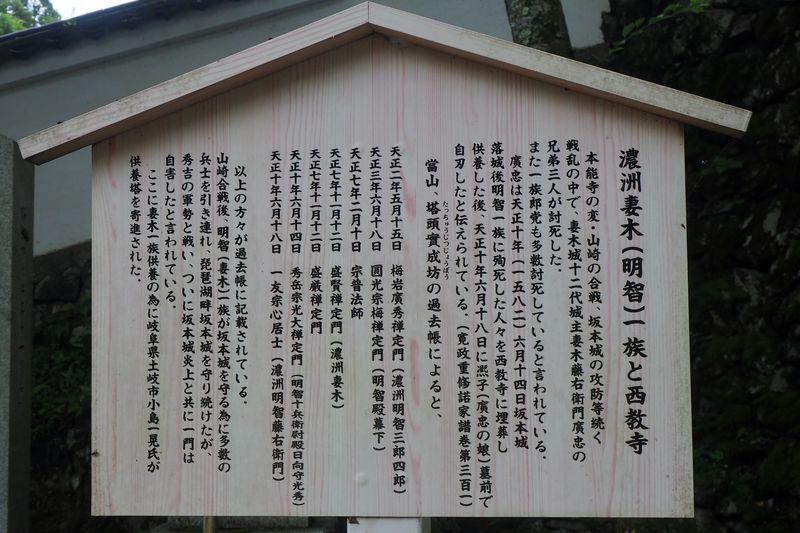 濃洲妻木(明智)一族と西教寺
本能寺の変・山崎の合戦、坂本城の攻防等続く
戦乱の中で、妻木城十二代城主妻木藤右衛門廣忠の
兄弟三人が討死した。
また一族郎党も多数討死していると言われている。
廣忠は天正十年(一五八二)六月十四日坂本城
落城後明智一族に殉死した人々を西教寺に埋葬し
供養した後、天正十年六月十八日に凞子(廣忠の娘)墓前で
自刃したと伝えられている。(寛政重修諸家譜巻第三百一)
當山、塔頭實成坊の過去帳によると、
たっちゅうじつじょうぼう
天正二年五月十五日 梅岩廣秀禅定門(濃洲明智三郎四郎)
天正三年六月十八日 圓光宗梅禅定門(明智殿幕下)
天正七年二月十日 宗普法師
天正七年十一月十二日 盛賢禅定門(濃洲妻木)
天正七年十一月十二日 盛厳禅定門
天正十年六月十四日 秀岳宗光大禅定門(明智十兵衛尉殿日向守光秀)
天正十年六月十八日 一友宗心居士(濃洲明智藤右衛門)
以上の方々が過去帳に記載されている。
山崎合戦後、明智(妻木)一族が坂本城を守る為に多数の
兵士を引き連れ、琵琶湖畔坂本城を守り続けたが、
秀吉の軍勢と戦い、ついに坂本城炎上と共に一門は
自害したと言われている。
ここに妻木一族供養の為に岐阜県土岐市小島一晃氏が
供養塔を寄進された。